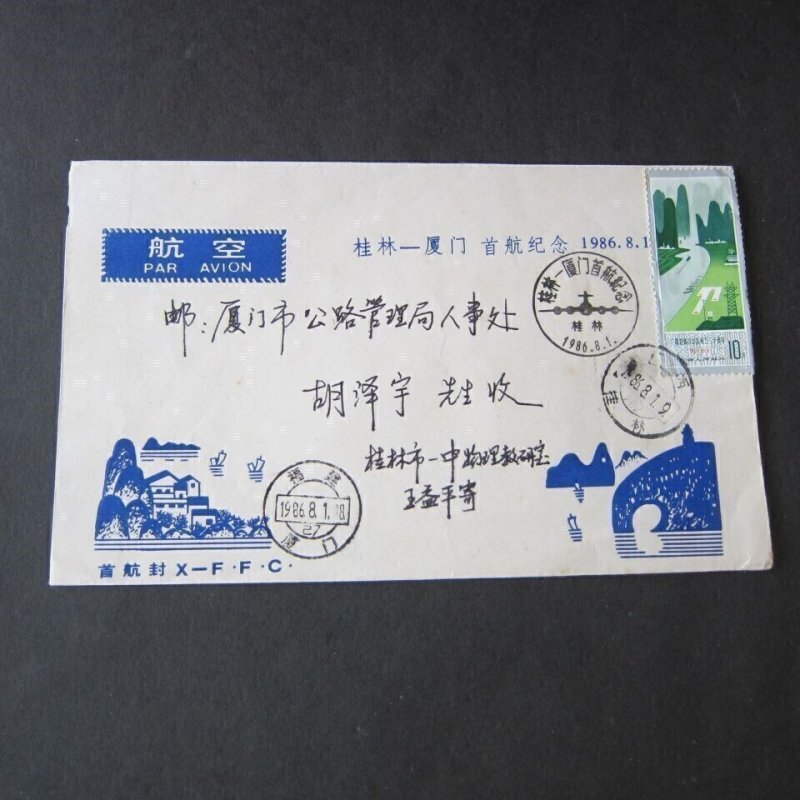 航空
PAR AVION
桂林—厦门 首航纪念 1986.8.1
桂林—厦门首航纪念
桂林
1986.8.1.
10
邮:厦门市公路管理局人事处
1986.8.1.9
桂林
胡泽宇 先生收
桂林市一中物理教研室
王益平寄
福建
1986.8.1.18
27
厦门
首航封 X—F·F·C·